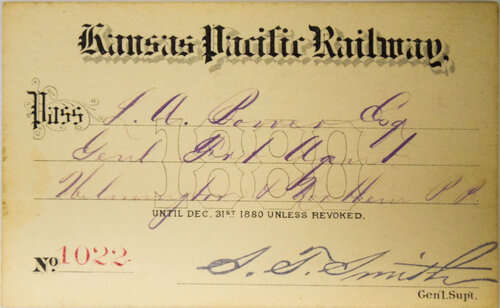 Kansas Pacific Railway.
Pass
Esq
Genl Frt Agent
Wilmington & Northern R.R.
1880
UNTIL DEC. 31ST 1880 UNLESS REVOKED.
No. 1022
S. T. Smith
Gen'l. Supt.